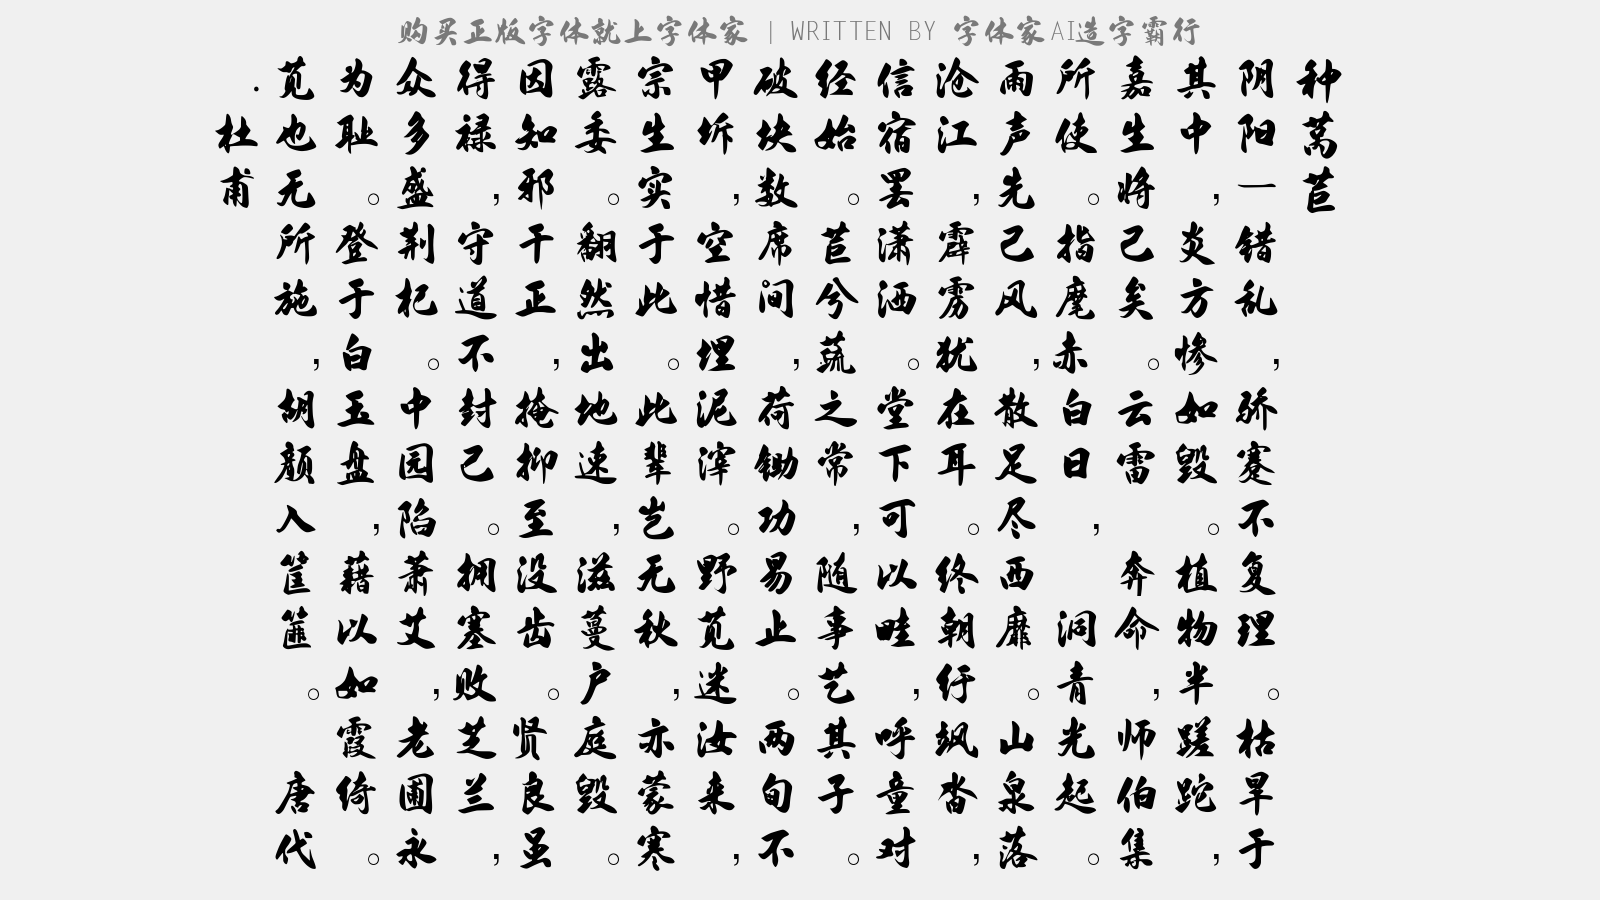 购买正版字体就上字体家 | WRITTEN BY 字体家AI造字霸行
种莴苣
阴阳一错乱，骄蹇不复理。枯旱于
其中，炎方惨如毁。植物半蹉跎，
嘉生将己矣。云雷 奔命，师伯集
所使。指麾赤白日， 洞青光起。
雨声先己风，散足尽西靡。山泉落
沧江，霹雳犹在耳。终朝纡飒沓，
信宿罢潇洒。堂下可以畦，呼童对
经始。苣兮蔬之常，随事艺其子。
破块数席间，荷锄功易止。两旬不
甲坼，空惜埋泥滓。野苋迷汝来，
宗生实于此。此辈岂无秋，亦蒙寒
露委。翻然出地速，滋蔓户庭毁。
因知邪干正，掩抑至没齿。贤良虽
得禄，守道不封己。拥塞败芝兰，
众多盛荆杞。中园陷萧艾，老圃永
为耻。登于白玉盘，藉以如霞绮。
苋也无所施，胡颜入筐篚。 唐代
.杜甫